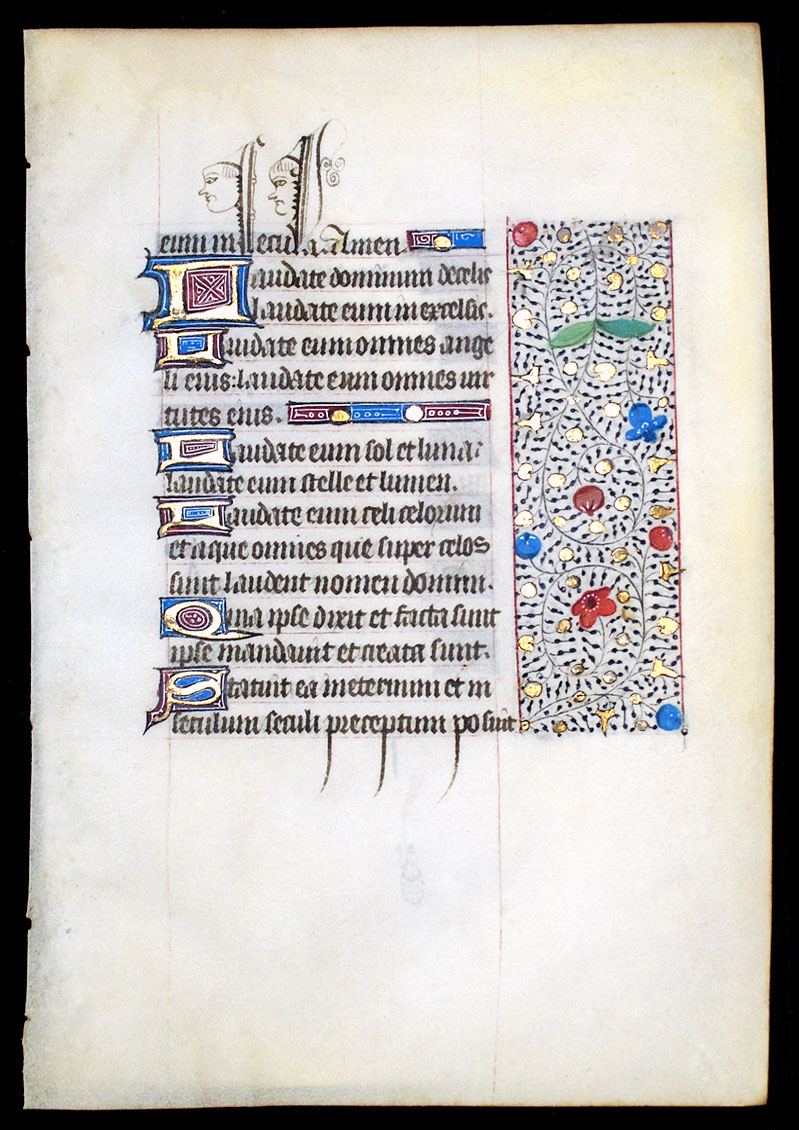 eum in secula. Amen.
Laudate dominum de celis
laudate eum in excelsis.
Laudate eum omnes ange
li eius: laudate eum omnes uir
tutes eius.
Laudate eum sol et luna:
laudate eum stelle et lumen.
Laudate eum celi celorum
et aque omnes que super celos
sunt laudent nomen domini.
Quia ipse dixit et facta sunt
ipse mandauit et creata sunt.
Statuit ea ineternum et in
seculum seculi preceptum posuit